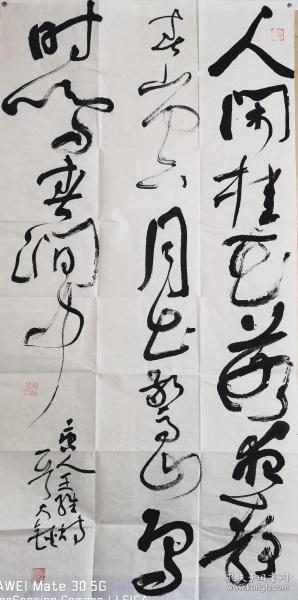 人闲桂花落夜静
春山空月出惊山鸟
时鸣春涧中
唐人王维诗
HUAWEI Mate 30 5G